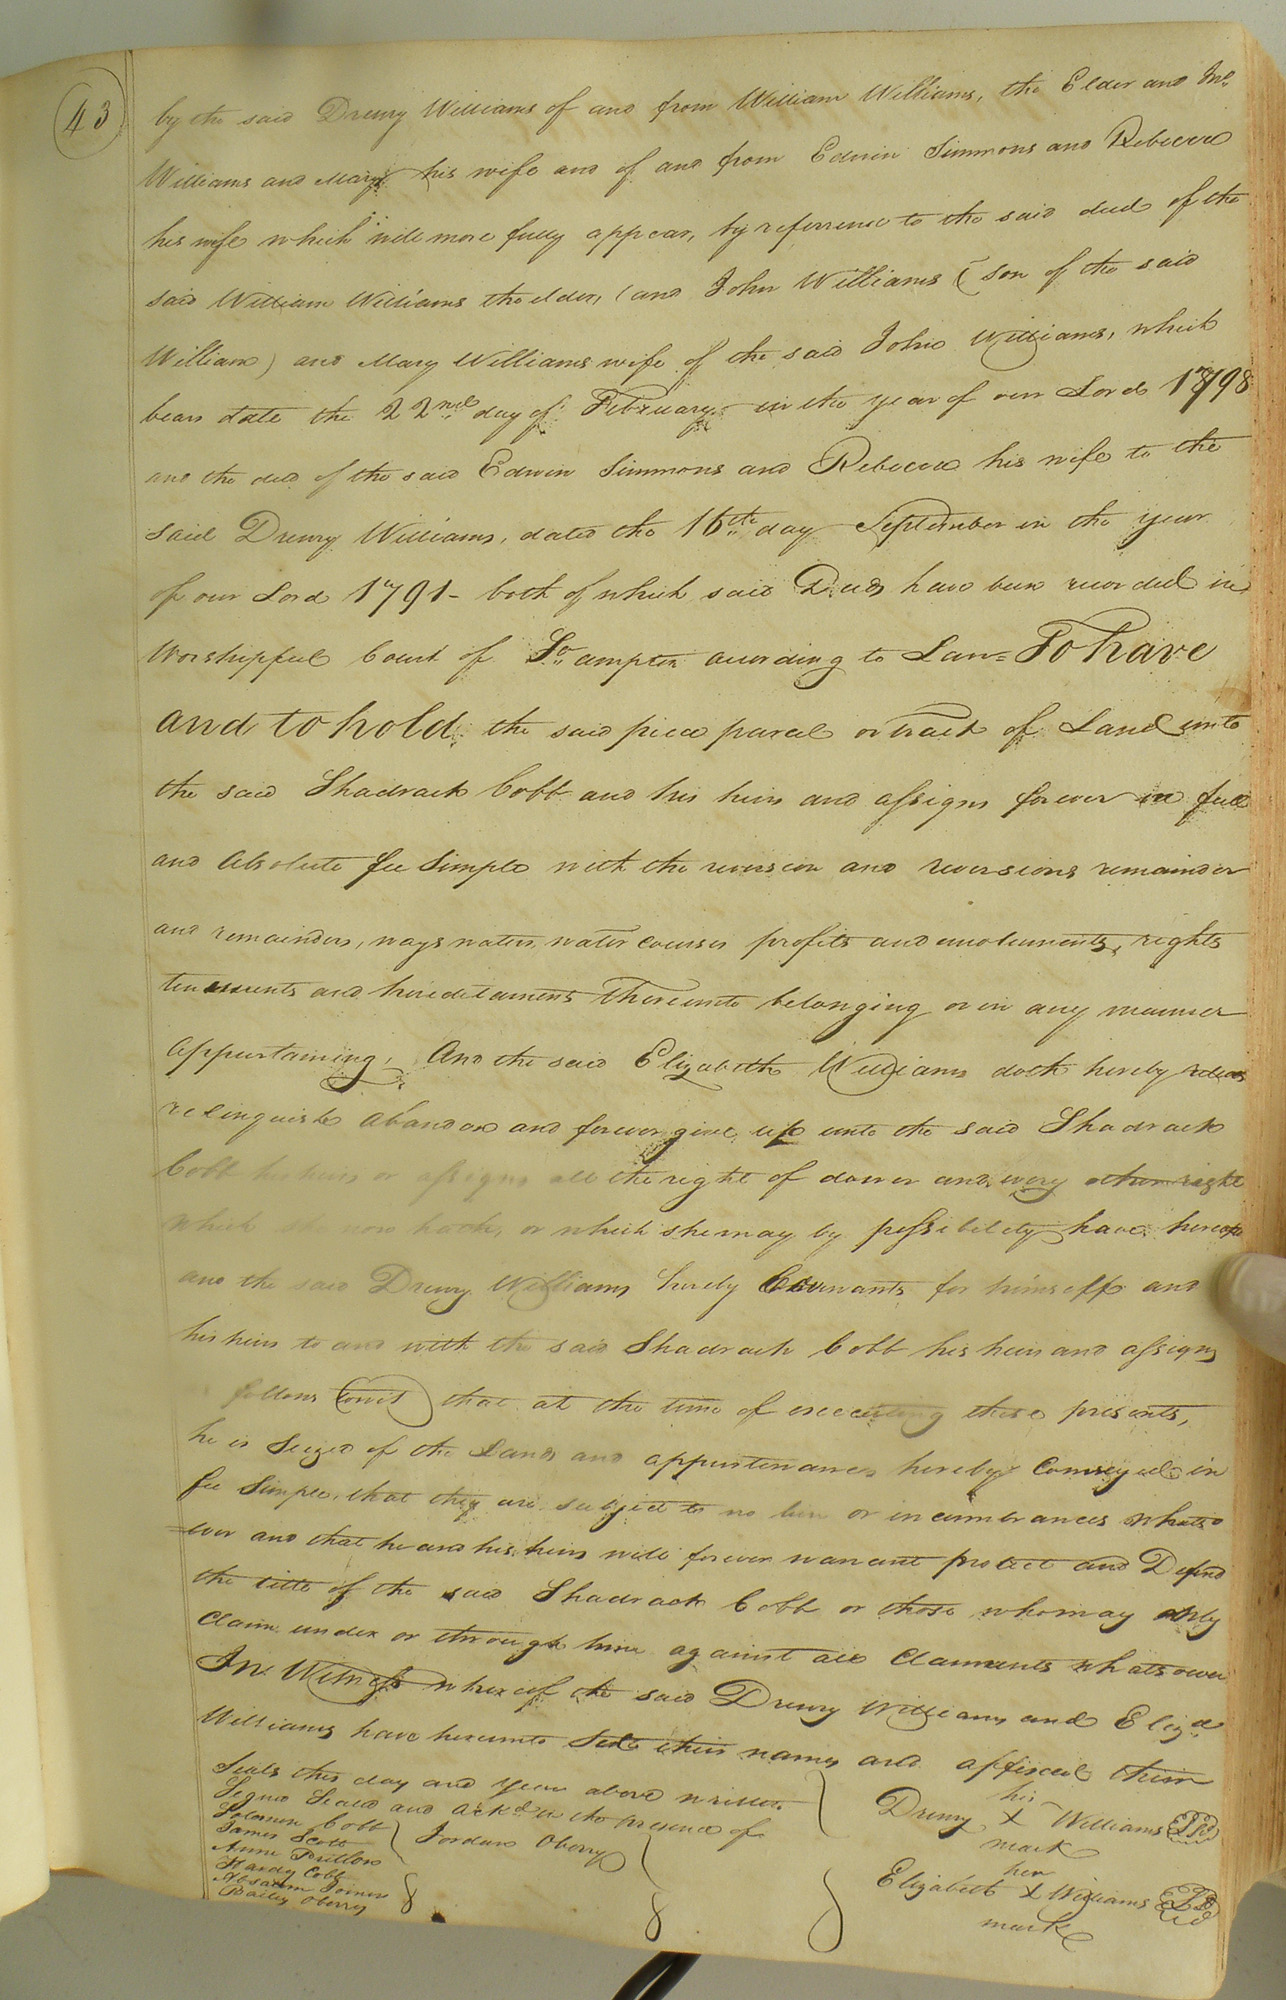 43
by the said Drewry Williams of and from William Williams, the Elder and Jno.
Williams and Mary his wife and of and from Edwin Simmons and Rebecca
his wife which will more fully appear, by referrence to the said deed of the
said William Williams the elder, (and John Williams (son of the said
William) and Mary Williams wife of the said John Williams, which
bears date the 22nd day of February in the year of our Lord 1798
and the deed of the said Edwin Simmons and Rebecca his wife to the
said Drewry Williams, dated the 16th day September in the year
of our Lord 1791 - both of which said Deeds have been recorded in
Worshipful Court of So.ampton according to Law = To have
and to hold, the said piece parcel or tract of Land unto
the said Shadrack Cobb and his heirs and assigns forever in full
and Absolute fee Simple with the reversion and reversions remainder
and remainders, ways waters, water courses profits and emoluments, rights
tenements and hereditaments thereunto belonging or in any manner
appurtaining, And the said Elizabeth Williams doth hereby
relinguish abandon and forever give up unto the said Shadrack
Cobb his heirs or assigns all the right of dower and every other right
which she now hath, or which she may by possibility have hereafter
and the said Drewry Williams hereby Covenants for himself and
his heirs to and with the said Shadrack Cobb his heirs and assigns
follows towit that at the time of executing these presents,
he is Seized of the Lands and appurtenances hereby Conveyed in
fee Simple, that they are subject to no lien or incumbrances whatso
=ever and that he and his heirs will forever warrant protect and Defend
the title of the said Shadrack Cobb or those who may only
Claim under or through him against all Claimants whatsoever
In Witness whereof the said Drewry Williams and Eliza.
Williams have hereunto Set their names and affixed their
Seals this day and year above written
Signed Sealed and Ackd in the presence of
Solomon Cobb
James Scott
Anne
Hardy Cobb
Absalom Joiner
Bailey Oberry
Jordan Oberry
his
Drewry X Williams
mark
her
Elizabeth X Williams
mark